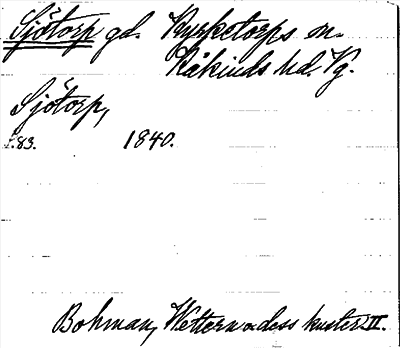 Sjötorp gd. Kyrketorps sn.
Kåkinds hd. Vg.
Sjötorp,
s.83. 1840.
Bohman, Wettern o dess kuster II.